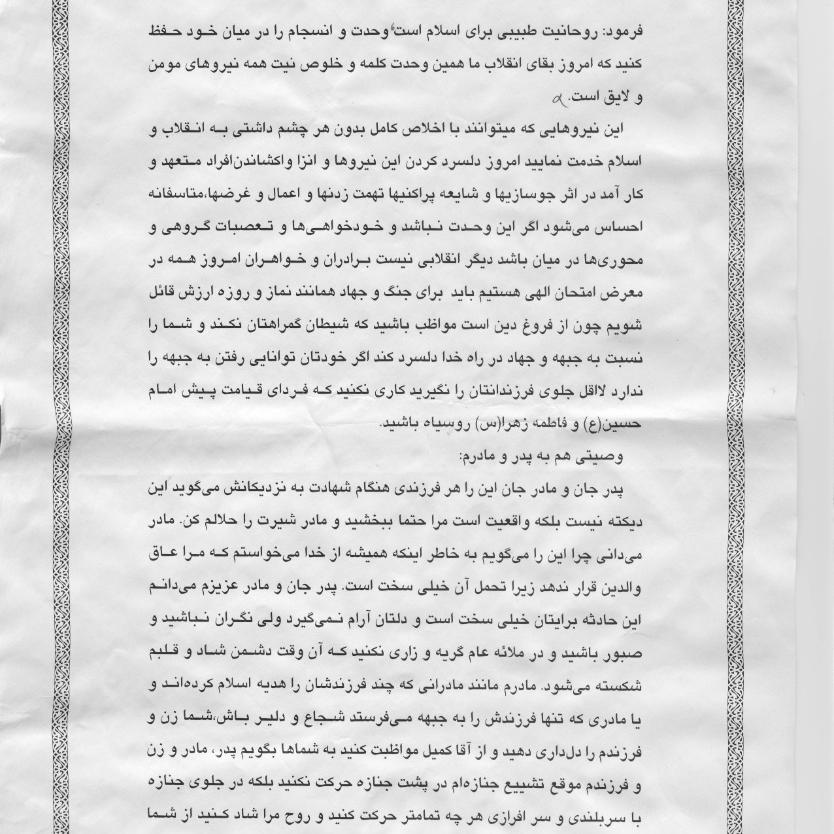 فرمود: روحانیت طبیبی برای اسلام است وحدت و انسجام را در میان خود حفظ
کنید که امروز بقای انقلاب ما همین وحدت کلمه و خلوص نیت همه نیروهای مومن
و لایق است.
این نیروهایی که میتوانند با اخلاص کامل بدون هر چشم داشتی به انقلاب و
اسلام خدمت نمایید امروز دلسرد کردن این نیروها و انزا واکشاندن‌افراد متعهد و
کار آمد در اثر جوسازیها و شایعه پراکنیها تهمت زدنها و اعمال و غرضها،متاسفانه
احساس می‌شود اگر این وحدت نباشد و خودخواهی‌ها و تعصبات گروهی و
محوری‌ها در میان باشد دیگر انقلابی نیست برادران و خواهران امروز همه در
معرض امتحان الهی هستیم باید برای جنگ و جهاد همانند نماز و روزه ارزش قائل
شویم چون از فروغ دین است مواظب باشید که شیطان گمراهتان نکند و شما را
نسبت به جبهه و جهاد در راه خدا دلسرد کند اگر خودتان توانایی رفتن به جبهه را
ندارد لااقل جلوی فرزندانتان را نگیرید کاری نکنید که فردای قیامت پیش امام
حسین(ع) و فاطمه زهرا(س) روسیاه باشید.
وصیتی هم به پدر و مادرم:
پدر جان و مادر جان این را هر فرزندی هنگام شهادت به نزدیکانش می‌گوید این
دیکته نیست بلکه واقعیت است مرا حتما ببخشید و مادر شیرت را حلالم کن. مادر
می‌دانی چرا این را می‌گویم به خاطر اینکه همیشه از خدا می‌خواستم که مرا عاق
والدین قرار ندهد زیرا تحمل آن خیلی سخت است. پدر جان و مادر عزیزم می‌دانم
این حادثه برایتان خیلی سخت است و دلتان آرام نمی‌گیرد ولی نگران نباشید و
صبور باشید و در ملائه عام گریه و زاری نکنید که آن وقت دشمن شاد و قلبم
شکسته می‌شود. مادرم مانند مادرانی که چند فرزندشان را هدیه اسلام کرده‌اند و
یا مادری که تنها فرزندش را به جبهه می‌فرستد شجاع و دلیر باش،شما زن و
فرزندم را دل‌داری دهید و از آقا کمیل مواظبت کنید به شماها بگویم پدر، مادر و زن
و فرزندم موقع تشییع جنازه‌ام در پشت جنازه حرکت نکنید بلکه در جلوی جنازه
با سربلندی و سر افرازی هر چه تمامتر حرکت کنید و روح مرا شاد کنید از شما